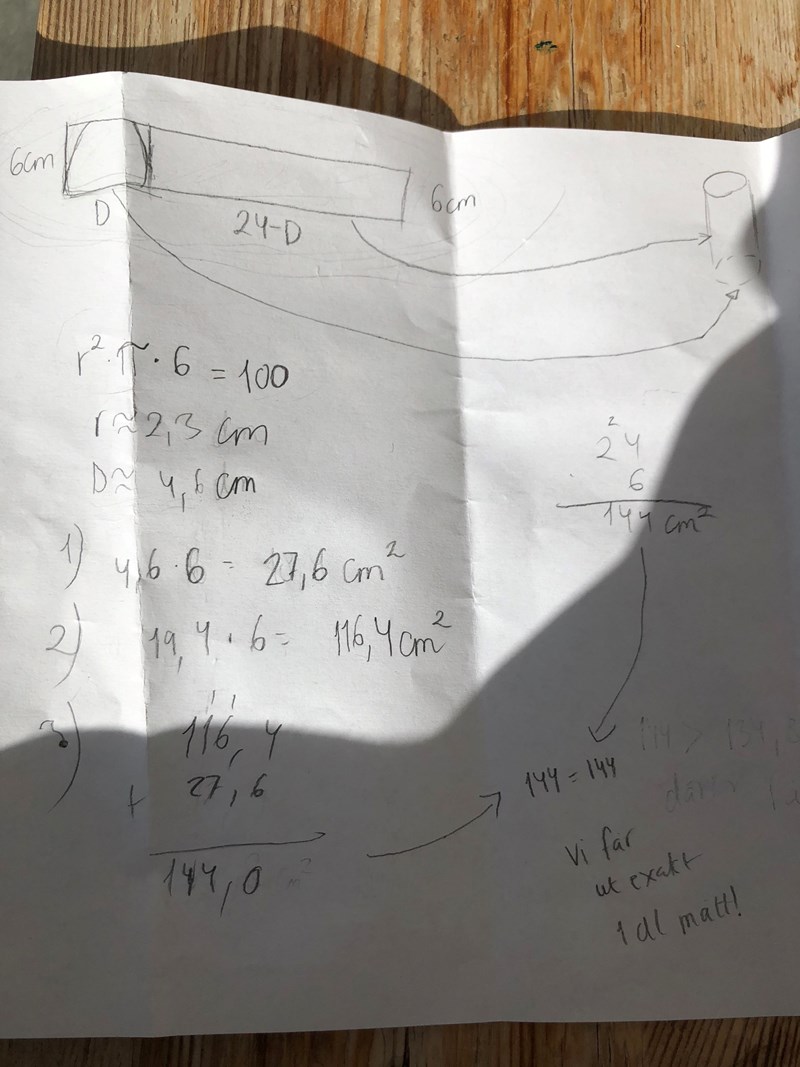 6cm
D
24-D
6cm
r²·π·6 = 100
r≈2,3 cm
D≈ 4,6 cm
2
24
· 6
144 cm²
1) 4,6·6 = 27,6 cm²
2) 19,4·6= 116,4cm²
3) 116,4
+ 27,6
144,0
144=144
Vi får
ut exakt
1 dl mått!